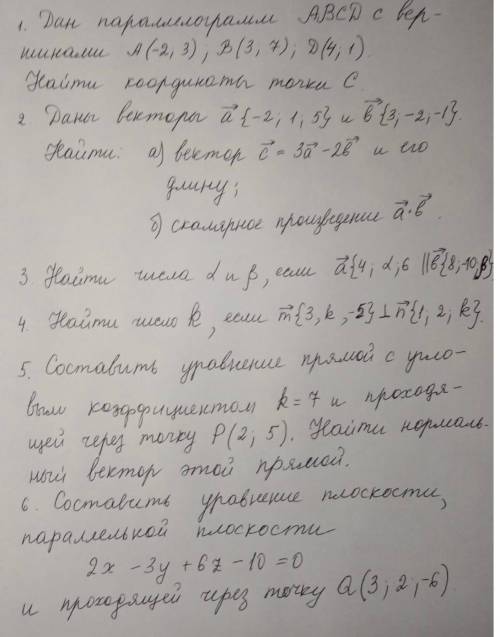 1. Дан параллелограмм ABCD с вер-
шинами A(-2; 3); B(3, 7); D(4, 1).
Найти координаты точки C.
2. Даны векторы a⃗{-2; 1; 5} и b⃗{3; -2; -1}.
Найти: а) вектор c⃗ = 3a⃗ - 2b⃗ и его
длину;
б) скалярное произведение a⃗·b⃗.
3. Найти числа α и β, если a⃗{4; α; 6 ∥ b⃗{8; -10; β}
4. Найти число k, если m⃗{3, k, -5} ⊥ n⃗{1; 2; k}
5. Составить уравнение прямой с угло-
вым коэффициентом k = 7 и проходя-
щей через точку P(2; 5). Найти нормаль-
ный вектор этой прямой.
6. Составить уравнение плоскости,
параллельной плоскости
2x - 3y + 6z - 10 = 0
и проходящей через точку Q(3; 2; -6)